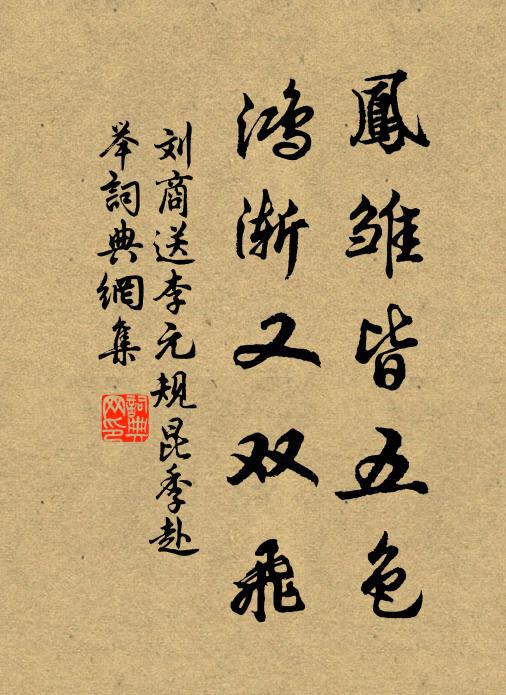 鳳雏皆五色
鸿渐又双飛
刘商送李元规昆季赴
举詞典網集
詞典网印